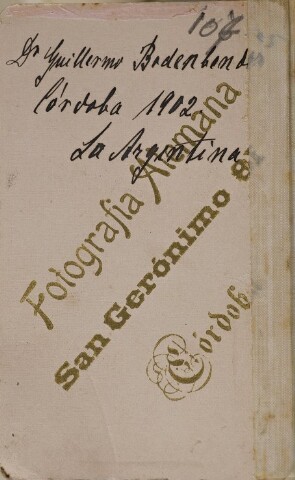 106
Dr Guillermo Bodenbend
Córdoba 1902.
La Argentina
Fotografía Alemana
San Gerónimo 8
Córdob